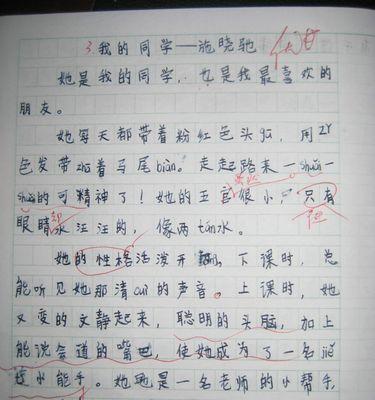 3.我的同学——施晓驰 优
她是我的同学，也是我最喜欢的
朋友。
她每天都带着粉红色头gu，用
色发带zhā着马尾biàn。走起路来一shuǎi一
shuǎi的可精神了！她的五官很小，只有
眼睛水汪汪的，像两tán水。
她的性格活泼开，下课时，总
能听见她那清cuì的声音。上课时，她
又变的文静起来，聪明的头脑，加上
能说会道的嘴巴，使她成为了一名jiě
题小能手。她也是一名老师的小帮手，